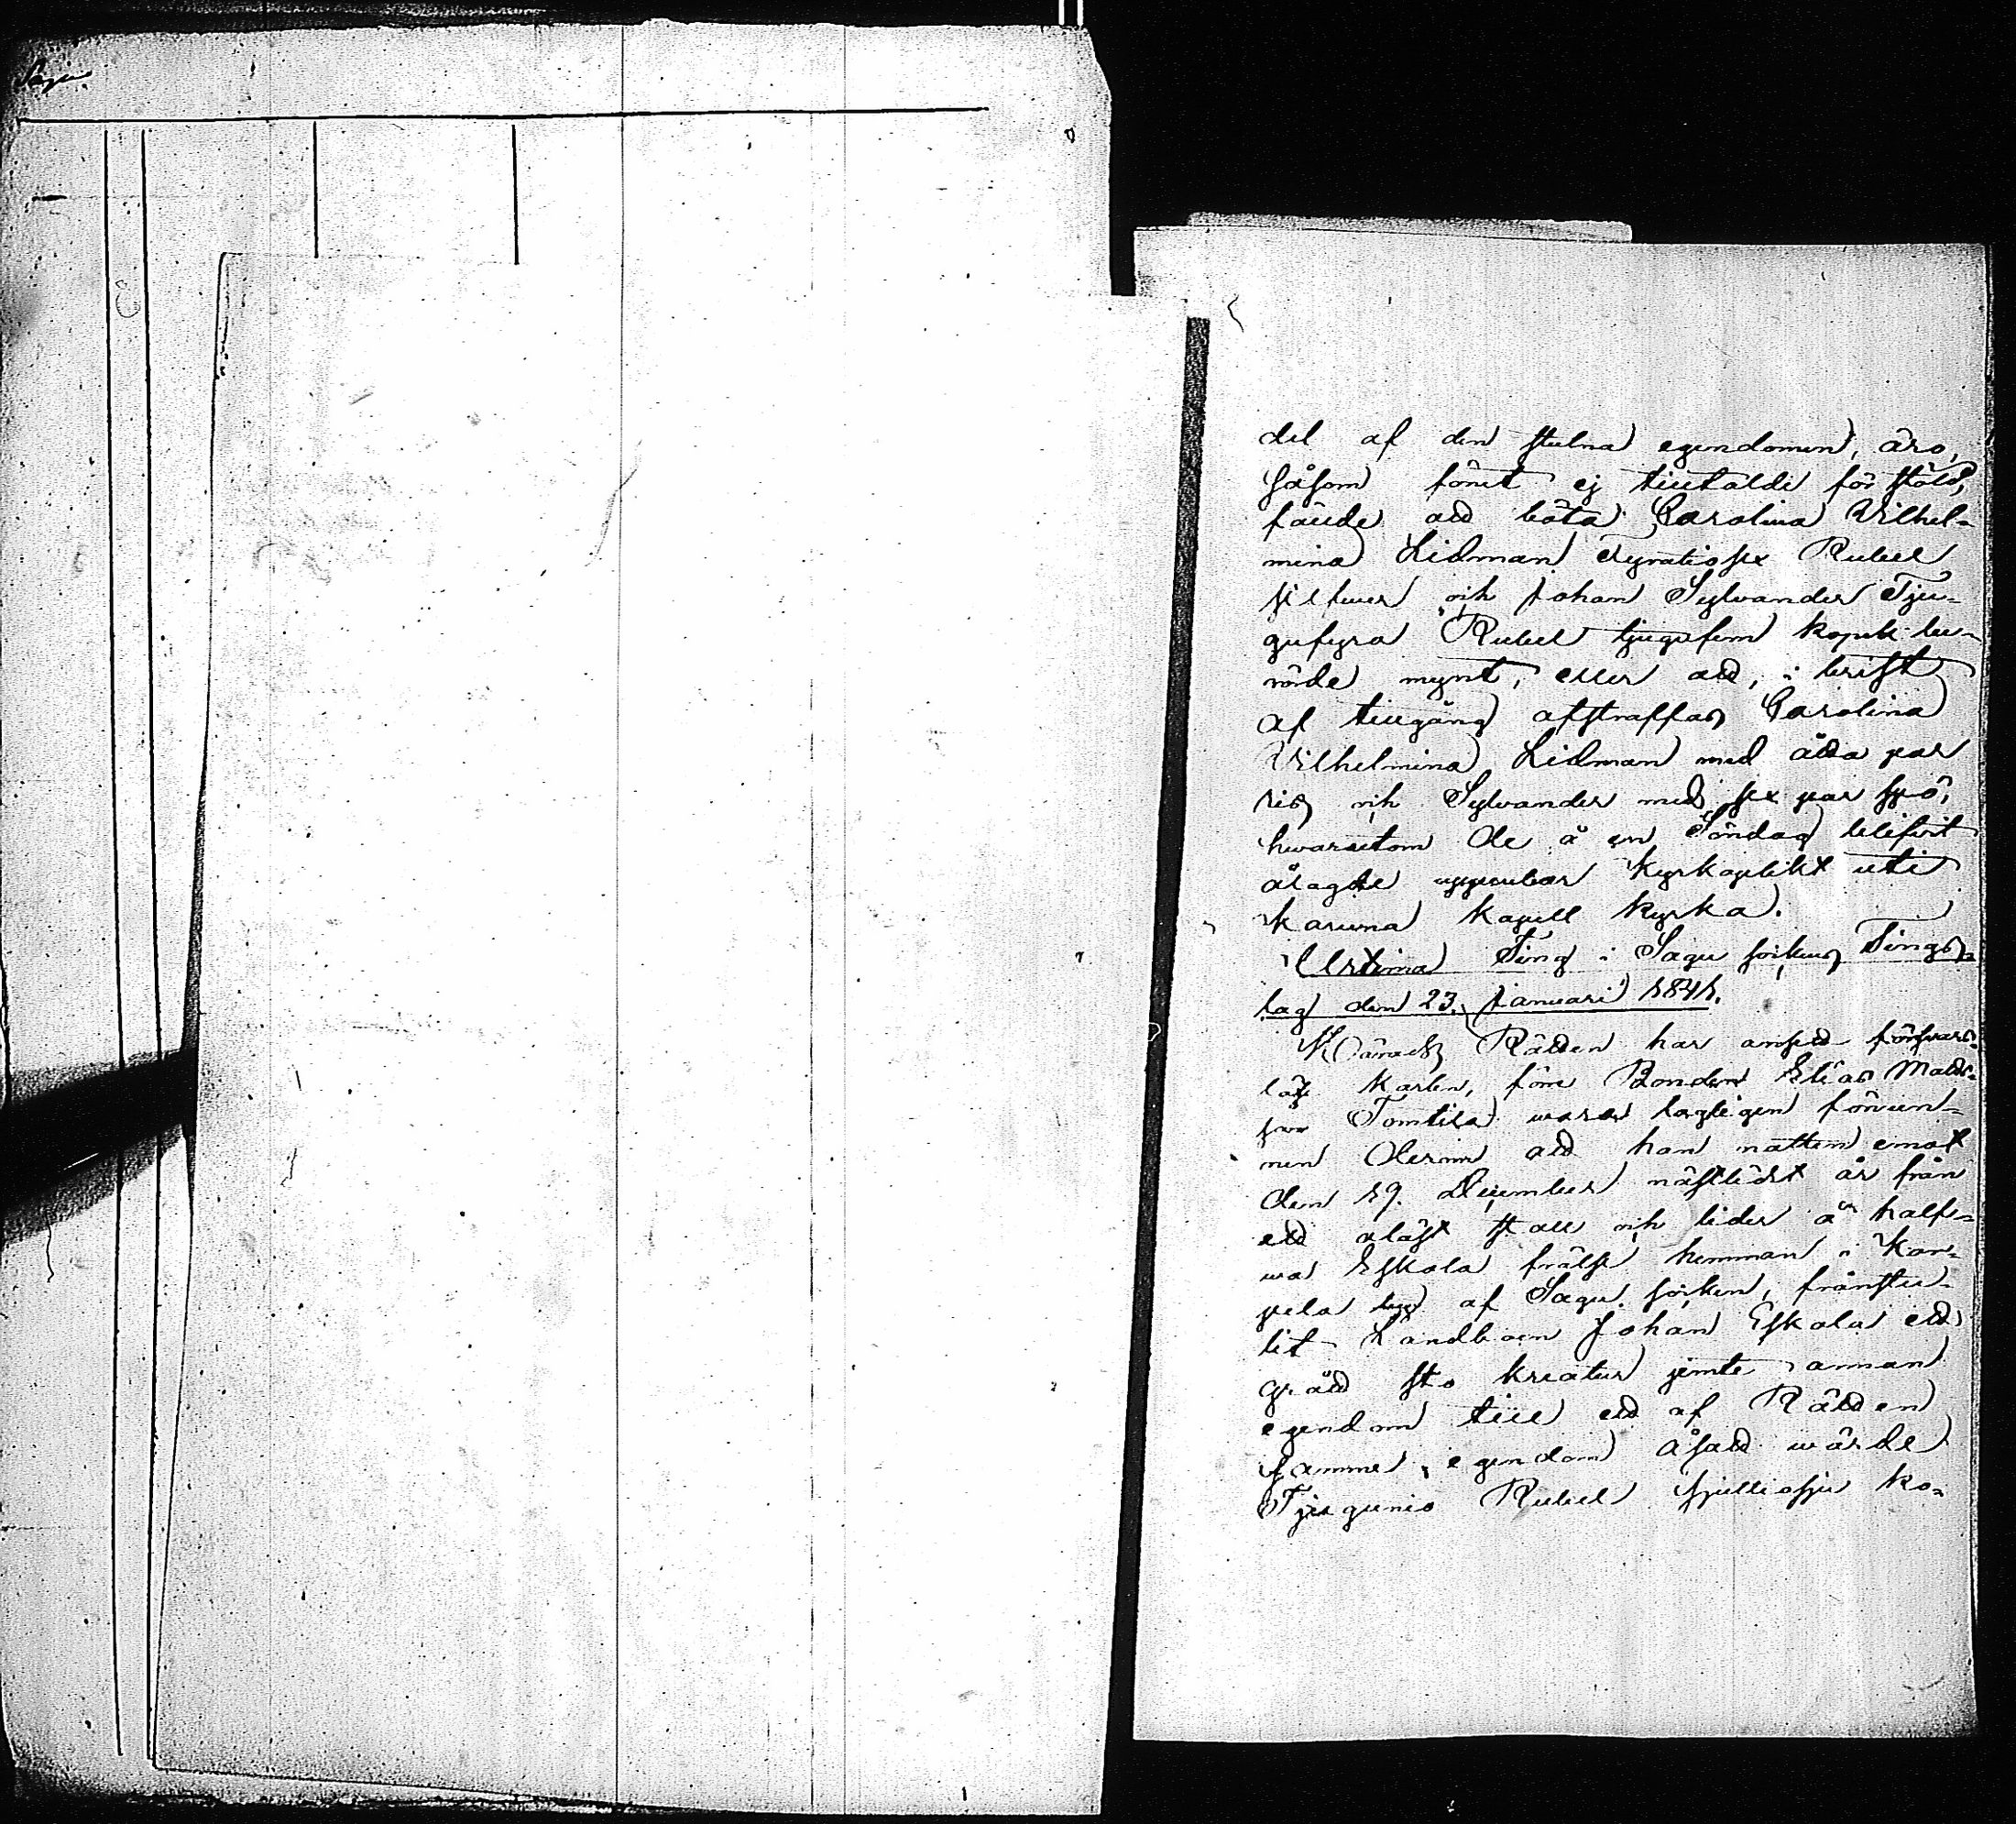 del af den stulna egendomen, äro,
såsom förut ej tilltalde för stöld,
fälde att böta Carolina Vilhel-
mina Lidman Fyratiosex Rubel
silfwer och Johan Sylvander Tju-
gufyra Rubel tjugufem kopek be-
rörde mynt, eller att, i brist
af tillgång afstraffas Carolina
Vilhelmina Lidman med åtta par
ris och Sylvander med sex par spö,
hwarutom de å en Söndag blifvit
ålagde uppenbar Kyrkoplikt uti
Karuna Kapell Kyrka.
Urtima Ting i Sagu sockens Tings-
lag den 23. Januari 1841.
Härads Rätten har ansett försvars-
löse Karlen, förre Bonden Elias Matts-
son Tomtila wara lagligen förwun-
nen derom att han natten emot
den 19. December nästledit år från
ett olåst stall och lider å halfwa
wa Eskola frälse hemman i Kar-
pela by af Sagu socken, frånstu-
lit Landboen Johan Eskola ett
grått sto kreatur jemte annan
egendom till ett af Rätten
samme egendom åsatt wärde
Tjugunio Rubel sjuttiosju ko-